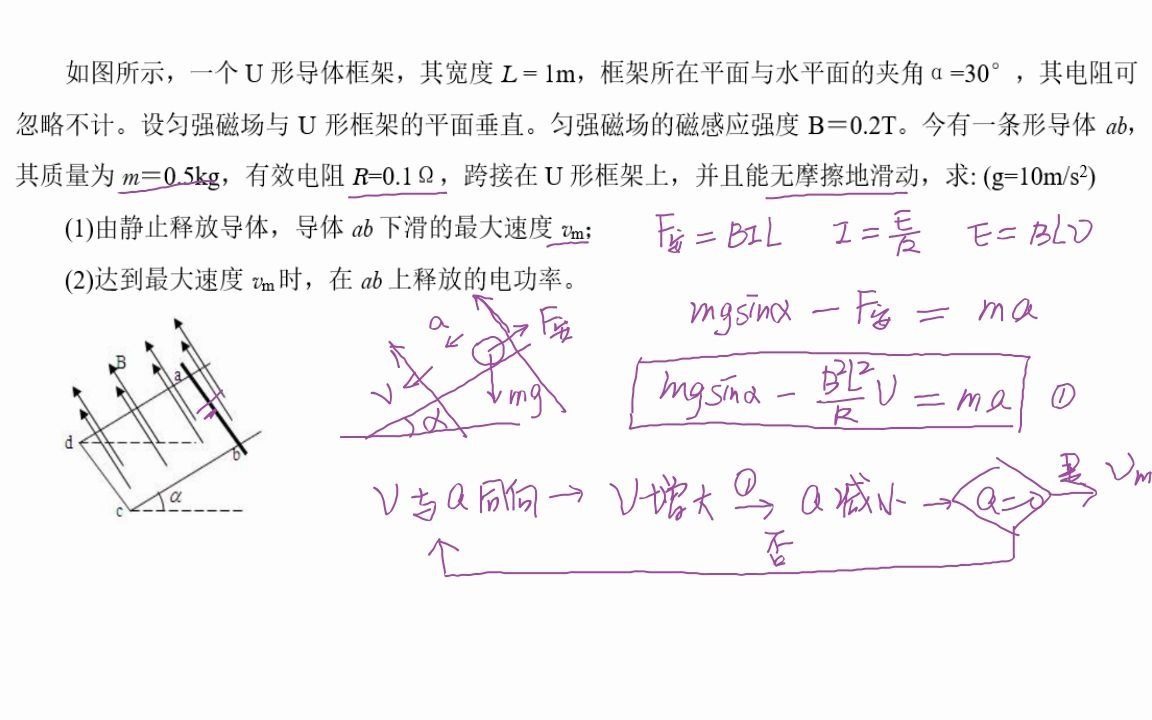 如图所示，一个 U 形导体框架，其宽度 L = 1m，框架所在平面与水平面的夹角α=30°，其电阻可
忽略不计。设匀强磁场与 U 形框架的平面垂直。匀强磁场的磁感应强度 B＝0.2T。今有一条形导体 ab，
其质量为 m＝0.5kg，有效电阻 R=0.1Ω，跨接在 U 形框架上，并且能无摩擦地滑动，求: (g=10m/s²)
(1)由静止释放导体，导体 ab 下滑的最大速度 vm；
F安 = BIL I = E/R E = BLv
(2)达到最大速度 vm 时，在 ab 上释放的电功率。
mgsinα - F安 = ma
mgsinα - B²L²/R v = ma ①
B
a
b
c
d
α
a
F安
v
mg
α
v与a同向 → v增大 ①→ a减小 → a=0 是→ vm
否